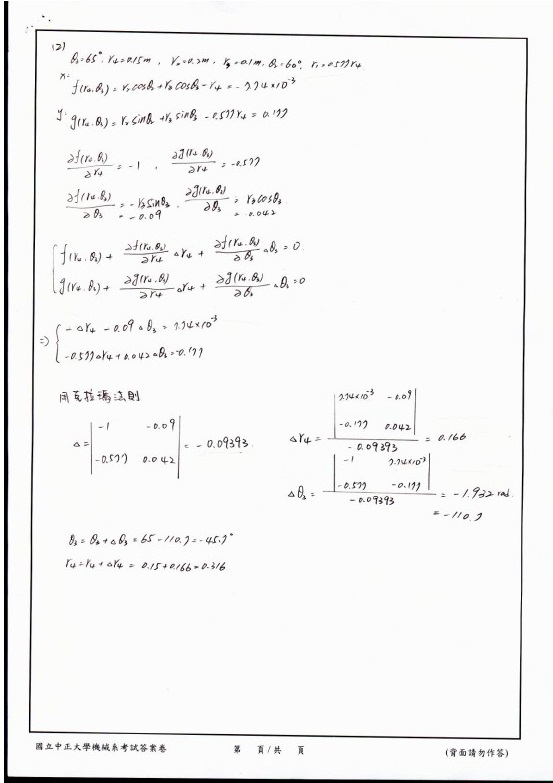 (2)
θ₃=65°, r₄=0.15m, r₂=0.2m, r₃=0.1m, θ₂=60°, r₁=0.577r₄
x: f(r₄.θ₃) = r₂cosθ₂+r₃cosθ₃-r₄ = -7.74×10⁻³
y: g(r₄.θ₃) = r₂sinθ₂+r₃sinθ₃-0.577r₄ = 0.177
∂f(r₄.θ₃)/∂r₄ = -1 , ∂g(r₄.θ₃)/∂r₄ = -0.577
∂f(r₄.θ₃)/∂θ₃ = -r₃sinθ₃ = -0.09 , ∂g(r₄.θ₃)/∂θ₃ = r₃cosθ₃ = 0.042
f(r₄.θ₃) + ∂f(r₄.θ₃)/∂r₄ Δr₄ + ∂f(r₄.θ₃)/∂θ₃ Δθ₃ = 0
g(r₄.θ₃) + ∂g(r₄.θ₃)/∂r₄ Δr₄ + ∂g(r₄.θ₃)/∂θ₃ Δθ₃ = 0
⇒ { -Δr₄ - 0.09Δθ₃ = 7.74×10⁻³
-0.577Δr₄ + 0.042Δθ₃ = -0.177
用克拉瑪法則
Δ = | -1 -0.09 |
| -0.577 0.042 | = -0.09393
Δr₄ = | 7.74×10⁻³ -0.09 |
| -0.177 0.042 | / -0.09393 = 0.166
Δθ₃ = | -1 7.74×10⁻³ |
| -0.577 -0.177 | / -0.09393 = -1.932 rad
= -110.7
θ₃ = θ₃ + Δθ₃ = 65 - 110.7 = -45.7°
r₄ = r₄ + Δr₄ = 0.15+0.166 = 0.316
國立中正大學機械系考試答案卷 第 頁/共 頁 (背面請勿作答)